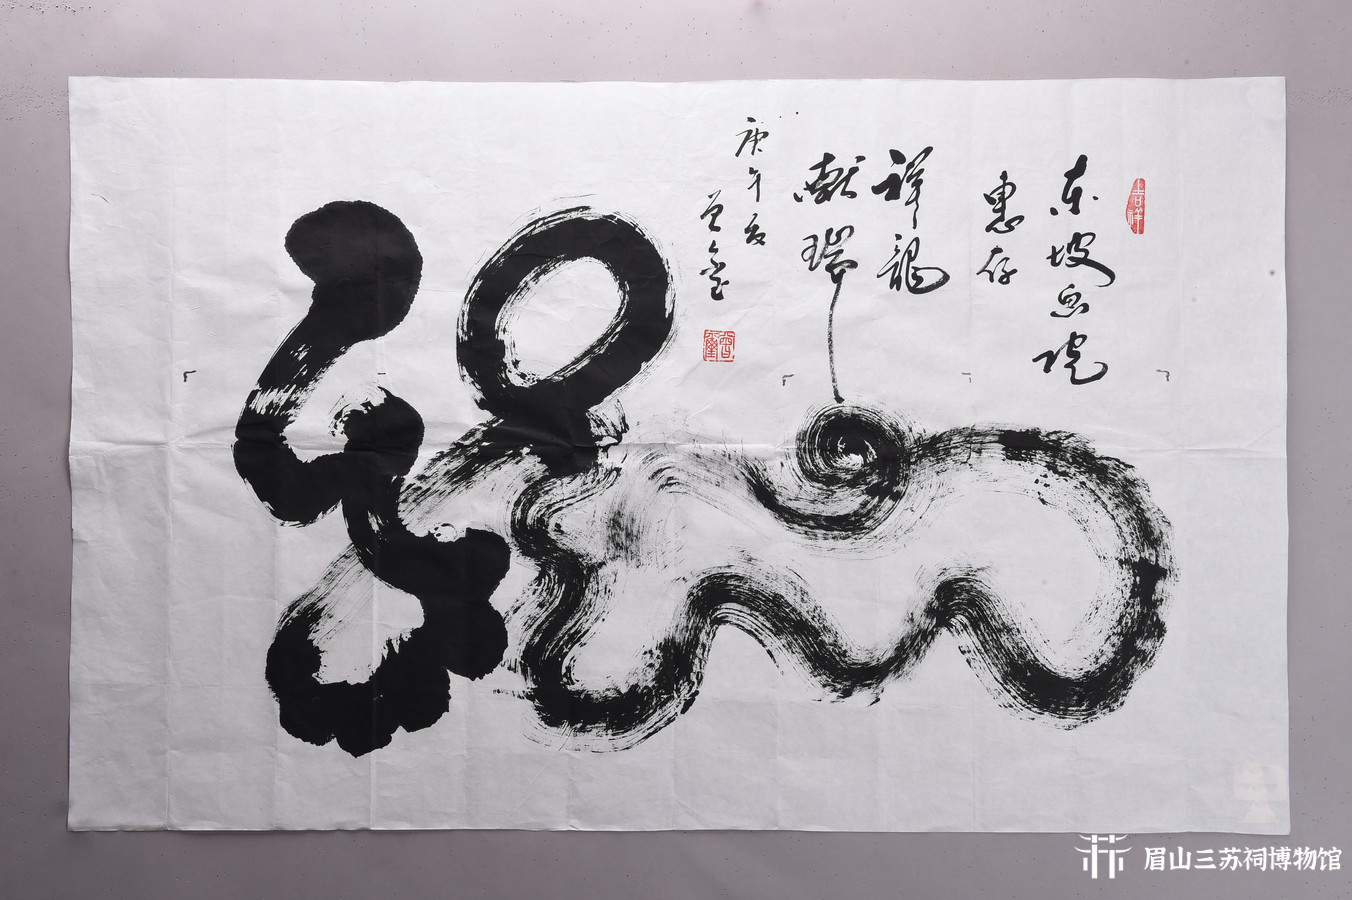 吉祥
东坡画院
惠存
祥龍
献瑞
庚午夏
龍
眉山三苏祠博物馆